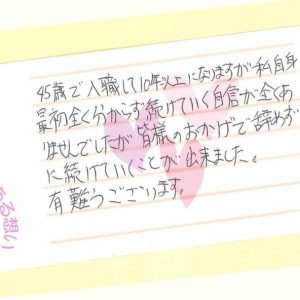 45歳で入職して10年以上になりますが私自身
最初全く分からず続けていく自信が全くあ
りませんでしたが皆様のおかげで辞めず
に続けていくことが出来ました。
有難うございます。
る想い